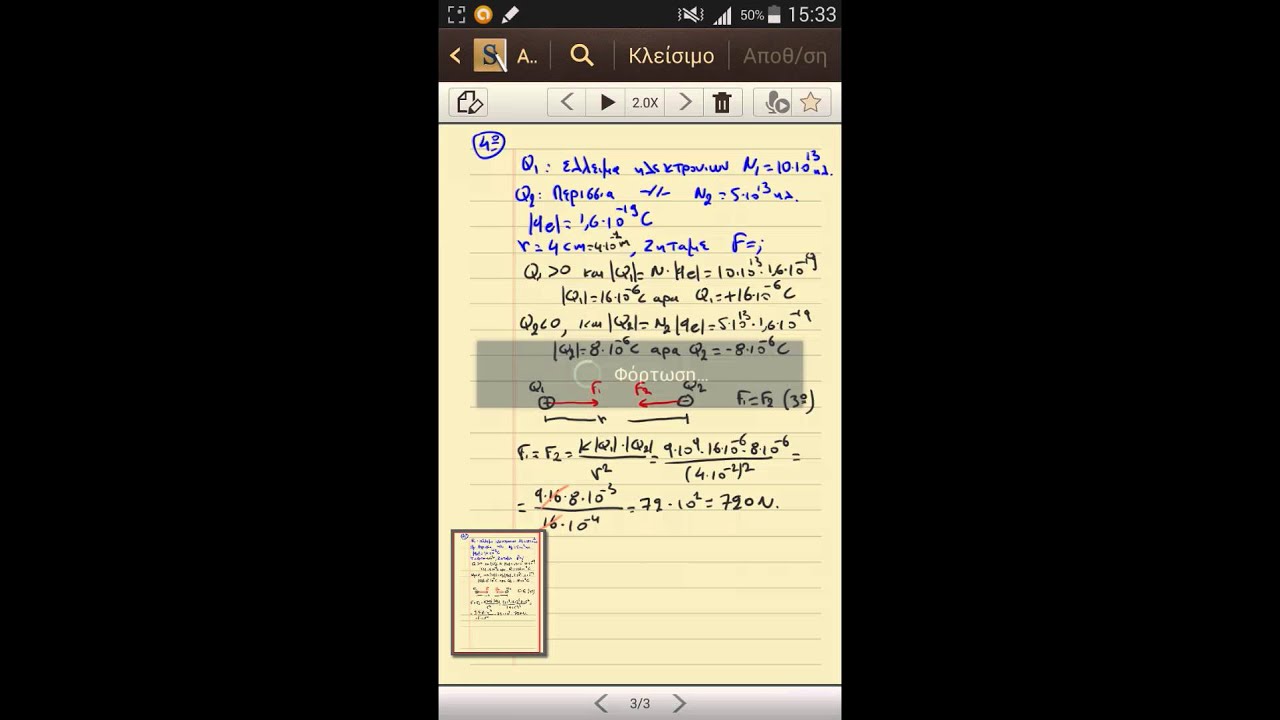 50% 15:33
S A.. Κλείσιμο Αποθ/ση
2.0X
4º
Q₁: Ελλειμα ηλεκτρονιων N₁=10·10¹³ηλ.
Q₂: Περισσια -//- N₂=5·10¹³ηλ.
|qe|=1,6·10⁻¹⁹C
r=4cm=4·10⁻²m, Ζηταμε F=;
Q₁>0 και |Q₁|=N·|qe|=10·10¹³·1,6·10⁻¹⁹
|Q₁|=16·10⁻⁶C αρα Q₁=+16·10⁻⁶C
Q₂<0, και |Q₂|=N₂|qe|=5·10¹³·1,6·10⁻¹⁹
|Q₂|=8·10⁻⁶C αρα Q₂=-8·10⁻⁶C
Φόρτωση...
Q₁ F₁ F₂ Q₂
+ - F₁=F₂ (3º)
r
F₁=F₂=k|Q₁|·|Q₂|/r²=9·10⁹·16·10⁻⁶·8·10⁻⁶/(4·10⁻²)²=
=9·16·8·10⁻³/16·10⁻⁴=72·10¹=720N.
3/3